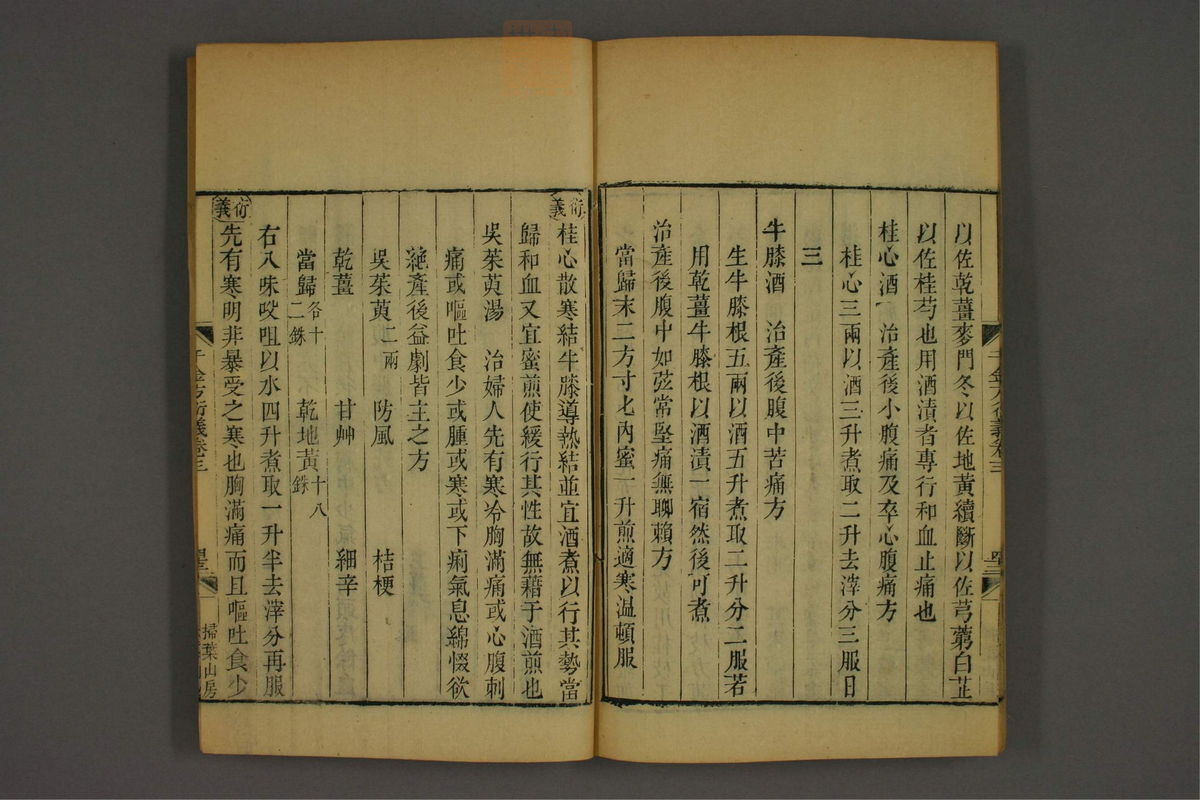 以佐乾薑麥門冬以佐地黃續斷以佐芎藭白芷
以佐桂芍也用酒漬者專行和血止痛也
桂心酒　治產後小腹痛及卒心腹痛方
桂心三兩以酒三升煮取二升去滓分三服日
三
牛膝酒　治產後腹中苦痛方
生牛膝根五兩以酒五升煮取二升分二服若
用乾薑牛膝根以酒漬一宿然後可煮
治產後腹中如弦常堅痛無聊賴方
當歸末二方寸匕內蜜一升煎適寒溫頓服
衍義
桂心散寒結牛膝導熱結並宜酒煮以行其勢當
歸和血又宜蜜煎使緩行其性故無藉于酒煎也
吳茱萸湯　治婦人先有寒冷胸滿痛或心腹刺
痛或嘔吐食少或腫或寒或下痢氣息綿惙欲
絕產後益劇皆主之方
吳茱萸二兩　防風　桔梗
乾薑　甘艸　細辛
當歸各十二銖　乾地黃十八銖
右八味㕮咀以水四升煮取一升半去滓分再服
衍義
先有寒明非暴受之寒也胸滿痛而且嘔吐食少
千金方衍義卷三
掃葉山房